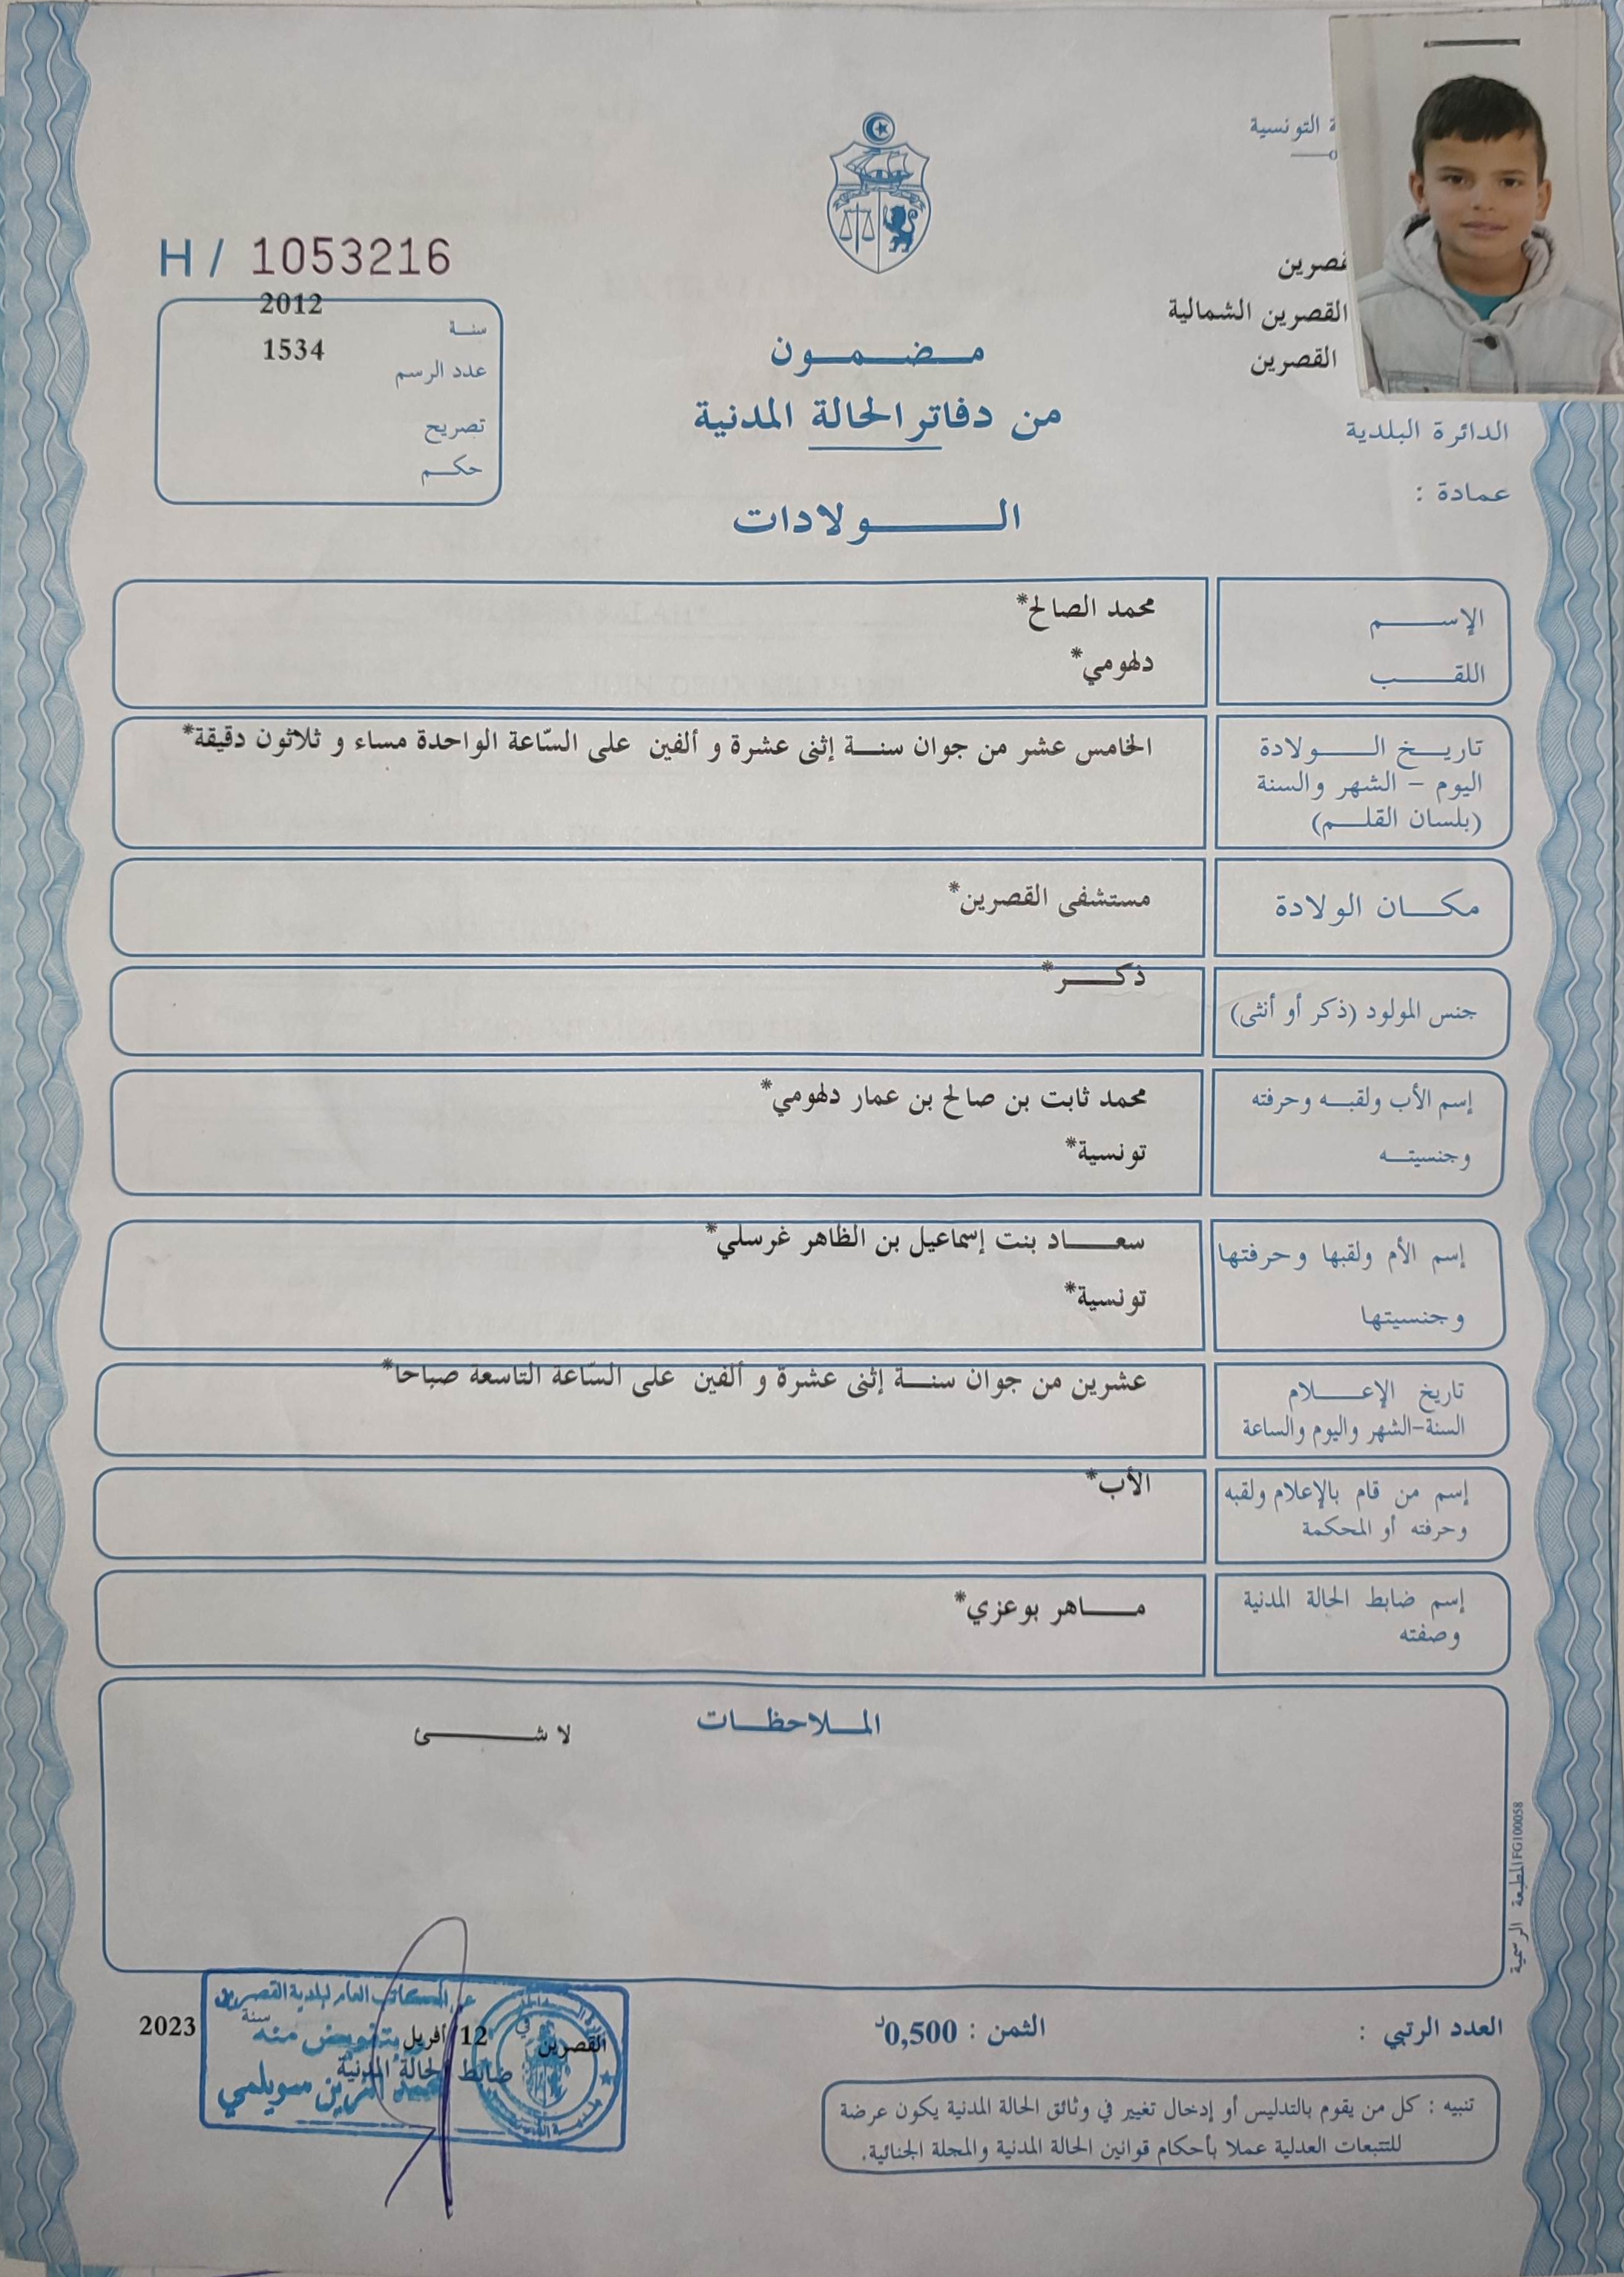 ة التونسية
قصرين
القصرين الشمالية
القصرين
الدائرة البلدية
عمادة :
H / 1053216
2012
سنــة
1534
عدد الرسم
تصريح
حكــم
مـــضـــمـــون
من دفاتر الحالة المدنية
الـــــولادات
الإســــــم محمد الصالح*
اللقـــــب دلهومي*
تاريـــخ الــــــولادة الخامس عشر من جوان سنـــة إثنى عشرة و ألفين على السّاعة الواحدة مساء و ثلاثون دقيقة*
اليوم – الشهر والسنة
(بلسان القلـــم)
مكـــان الولادة مستشفى القصرين*
جنس المولود (ذكر أو أنثى) ذكـــــر*
إسم الأب ولقبــه وحرفته محمد ثابت بن صالح بن عمار دلهومي*
وجنسيتـــه تونسية*
إسم الأم ولقبها وحرفتها سعـــــاد بنت إسماعيل بن الظاهر غرسلي*
وجنسيتها تونسية*
تاريخ الإعـــــلام عشرين من جوان سنـــة إثنى عشرة و ألفين على السّاعة التاسعة صباحا*
السنة-الشهر واليوم والساعة
إسم من قام بالإعلام ولقبه الأب*
وحرفته أو المحكمة
إسم ضابط الحالة المدنية مـــــاهر بوعزي*
وصفته
الملاحظـــات
لا شـــــــئ
المطبعة الرسمية FG100058
العدد الرتبي :
الثمن : 0,500د
عن الكاتب العام لبلدية القصرين
القصرين في 12 أفريل سنة 2023
وبتفويض منه
ضابط الحالة المدنية
سويلمي
تنبيه : كل من يقوم بالتدليس أو إدخال تغيير في وثائق الحالة المدنية يكون عرضة
للتتبعات العدلية عملا بأحكام قوانين الحالة المدنية والمجلة الجنائية.